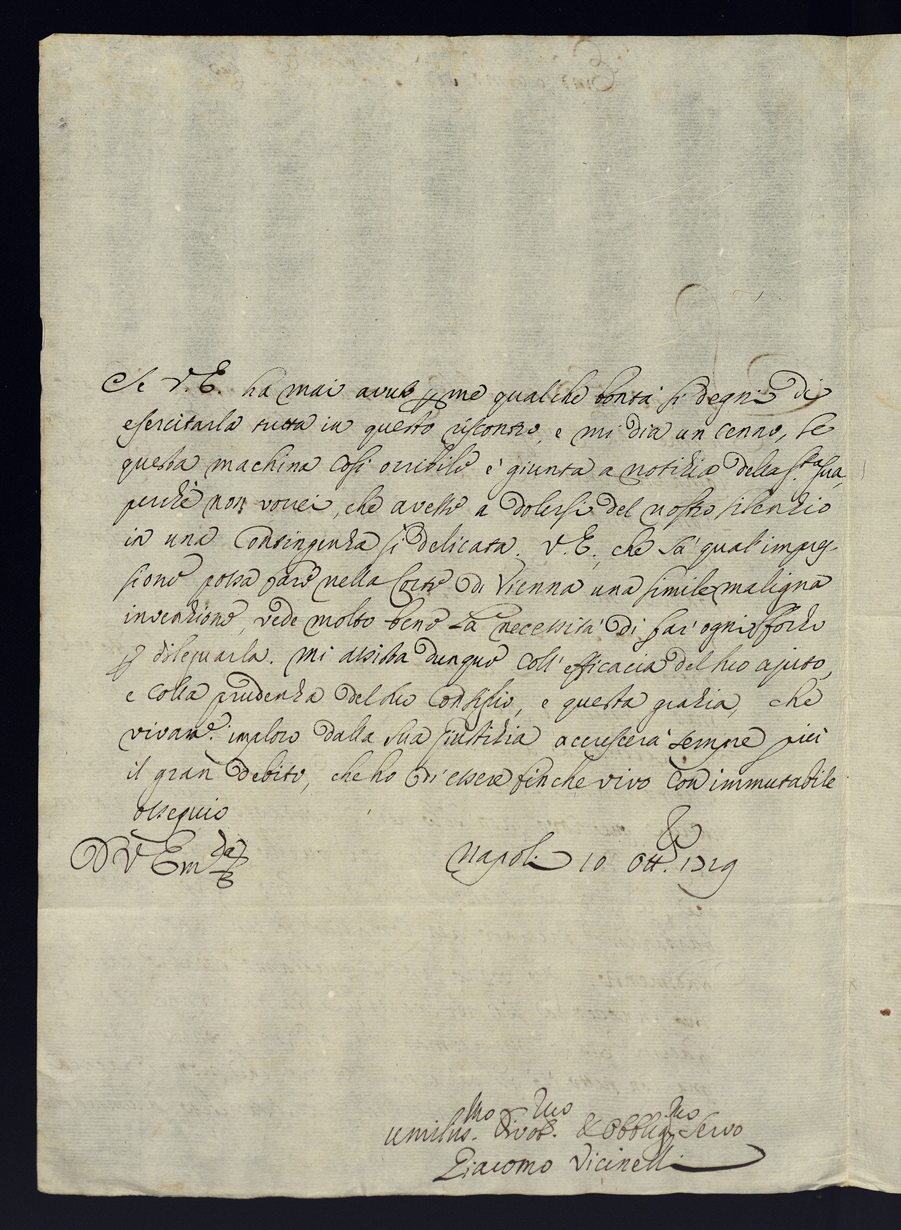 Se V. E. ha mai avuta p me qualche bontà si degni di
esercitarla tutta in questo riscontro, e mi dia un cenno, se
questa machina così orribile è giunta a notizia della S.tà Sua,
perche non vorrei, che avesse a dolersi del nostro silenzio
in una contingenza si delicata. V. E., che sà qual' impres-
sione possa fare nella Corte di Vienna una simile maligna
invenzione, vede molto bene la necessità di far' ogni sforzo
p dileguarla. Mi assista dunque coll' efficacia del suo ajuto,
e colla prudenza del suo Consiglio, e questa grazia, che
vivam.e imploro dalla sua giustizia accrescerà sempre più
il gran debito, che ho di essere finche vivo con immutabile
ossequio
D V Em.za
Napoli 10 Ott. 1719
Umilis.mo Divot.mo & Obblig.mo Servo
Giacomo Vicinelli